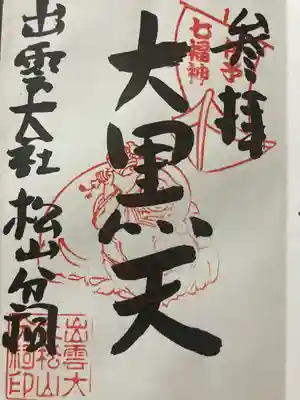 参拝
七福神
大黒天
出雲大社 松山分祠
出雲大
社松山
分祠印